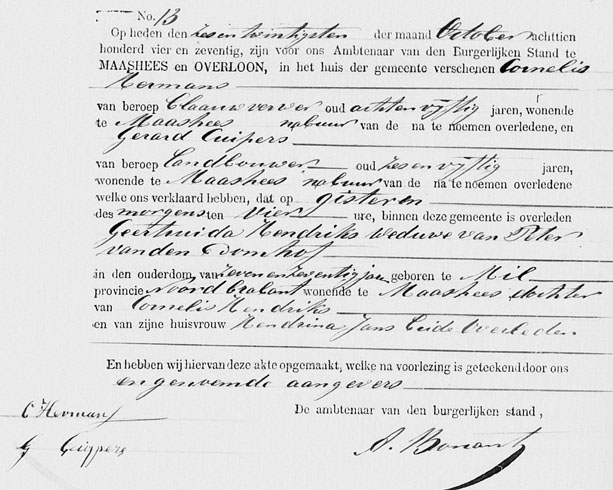 No. 13
Op heden den zesentwintigsten der maand October achttien
honderd vier en zeventig, zijn voor ons Ambtenaar van den Burgerlijken Stand te
MAASHEES en OVERLOON, in het huis der gemeente verschenen Cornelis
Hermans
van beroep Blaauwverver oud achtenvijftig jaren, wonende
te Maashees nabuur van de na te noemen overledene, en
Gerard Cuipers
van beroep Landbouwer oud zesenvijftig jaren,
wonende te Maashees nabuur van de na te noemen overledene
welke ons verklaard hebben, dat op gisteren
des morgens ten vier ure, binnen deze gemeente is overleden
Geertruida Hendriks weduwe van Peter
van den
in den ouderdom van zevenenzeventig jaar geboren te Mil
provincie Noordbrabant wonende te Maashees dochter
van Cornelis Hendriks
en van zijne huisvrouw Hendrina Jans beide overleden
En hebben wij hiervan deze akte opgemaakt, welke na voorlezing is geteekend door ons
en genoemde aangevers
De ambtenaar van den burgerlijken stand,
C Hermans
G
A.